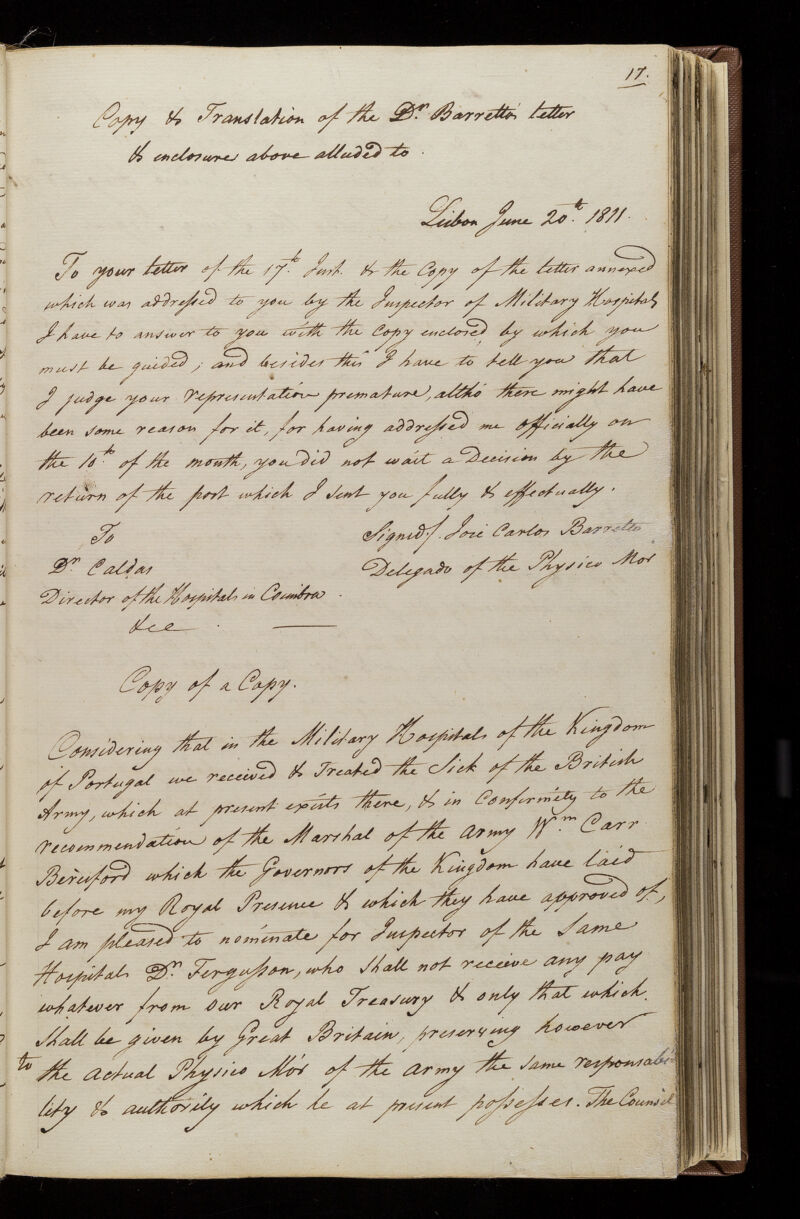 17.
Copy & Translation of the Dr. Barretto's letter
& enclosure above alluded to.
Lisbon June 20th. 1811.
To your letter of the 17th. Inst. & the Copy of the letter annexed
which was addressed to you by the Inspector of Military Hospitals
I have to answer to you with the copy enclosed, by which you
must be guided; and besides this I have to tell you that
I judge your representation premature, altho' there might have
been some reason for it, for having addressed me officially on
the 10th. of the month, you did not wait a Decision by the
return of the post which I sent you fully & effectually.
To
Signed/. José Carlos Barretto
Dr. Caldas
Delegado of the Physico Mor
Director of the Hospitals in Coimbra.
&ce.
Copy of a Copy.
Considering that in the Military Hospitals of the Kingdom
of Portugal we received & Treated the Sick of the British
Army, which at present exists there, & in Conformity to the
recommendation of the Marshal of the army Wm. Carr
Beresford which the Governors of the Kingdom have laid
before my Royal Presence & which they have approved of,
I am pleased to nominate for Inspector of the Same
Hospitals Dr. Fergusson, who shall not receive any pay
whatever from our Royal Treasury & only that which
shall be given by Great Britain, preserving however
to
the actual Physico Mór of the army the same responsabi
lity & authority which he at present possesses. The Counsil